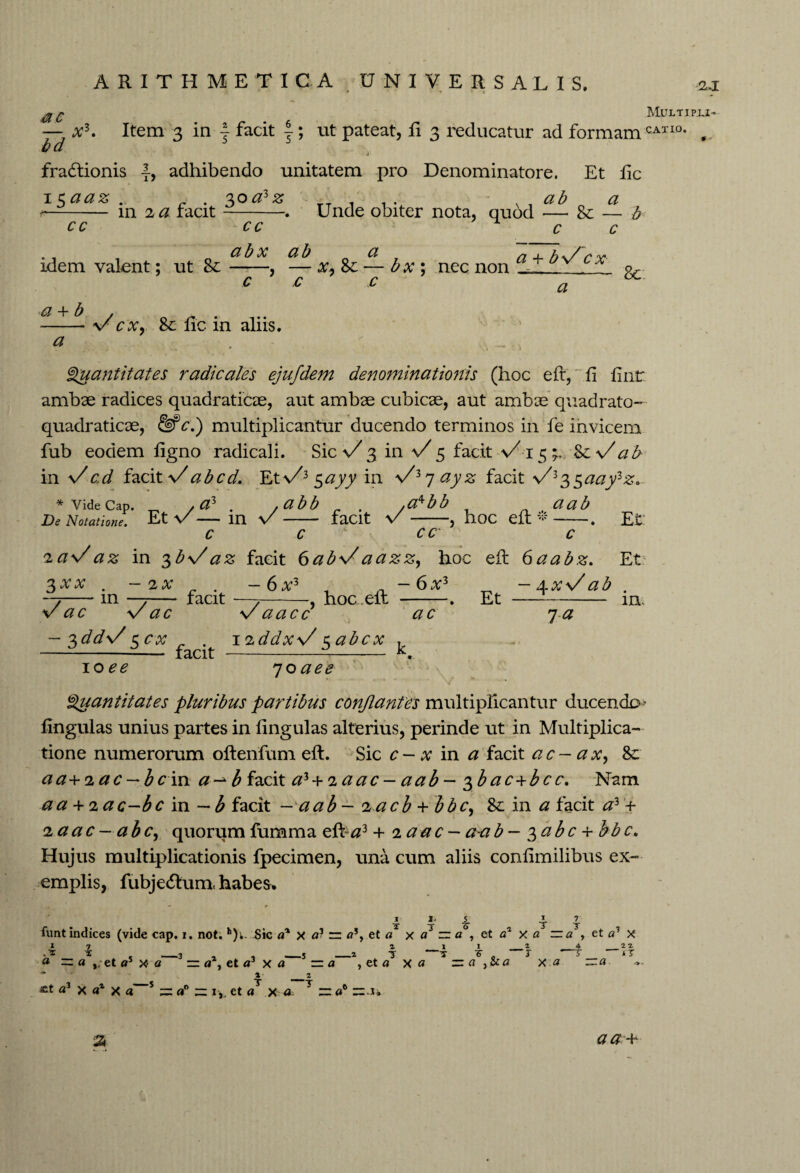 ARITHMETICA UNIVERSALIS. 21
MULTIPLI-
CATIO.
ac/bd x³. Item 3 in 2/5 facit 6/5; ut pateat, ſi 3 reducatur ad formam
fractionis 3/1, adhibendo unitatem pro Denominatore. Et ſic
15aaz/cc in 2a facit 30a³z/cc. Unde obiter nota, quòd ab/c & a/c b
idem valent; ut & abx/c, ab/c x, & a/c bx; nec non (a+b√cx)/a &
(a+b)/a √cx, & ſic in aliis.
Quantitates radicales ejuſdem denominationis (hoc eſt, ſi ſint
ambæ radices quadraticæ, aut ambæ cubicæ, aut ambæ quadrato-
quadraticæ, &c.) multiplicantur ducendo terminos in ſe invicem
ſub eodem ſigno radicali. Sic √3 in √5 facit √15; & √ab
in √cd facit √abcd. Et √³5ayy in √³7ayz facit √³35aay³z.
* Vide Cap.
De Notatione.
Et √a³/c in √abb/c facit √a⁴bb/cc, hoc eſt * aab/c. Et
2a√az in 3b√az facit 6ab√aazz, hoc eſt 6aabz. Et
3xx/√ac in −2x/√ac facit −6x³/√aacc, hoc eſt −6x³/ac. Et −4x√ab/7a in
−3dd√5cx/10ee facit 12ddx√5abcx/70aee k.
Quantitates pluribus partibus conſtantes multiplicantur ducendo
ſingulas unius partes in ſingulas alterius, perinde ut in Multiplica-
tione numerorum oſtenſum eſt. Sic c−x in a facit ac−ax, &
aa+2ac−bc in a−b facit a³+2aac−aab−3bac+bcc. Nam
aa+2ac−bc in −b facit −aab−2acb+bbc, & in a facit a³+
2aac−abc, quorum ſumma eſt a³+2aac−aab−3abc+bbc.
Hujus multiplicationis ſpecimen, unà cum aliis conſimilibus ex-
emplis, ſubjectum habes.
ſunt indices (vide cap. 1. not. ʰ). Sic a² × a³ = a⁵, et
2
aa+